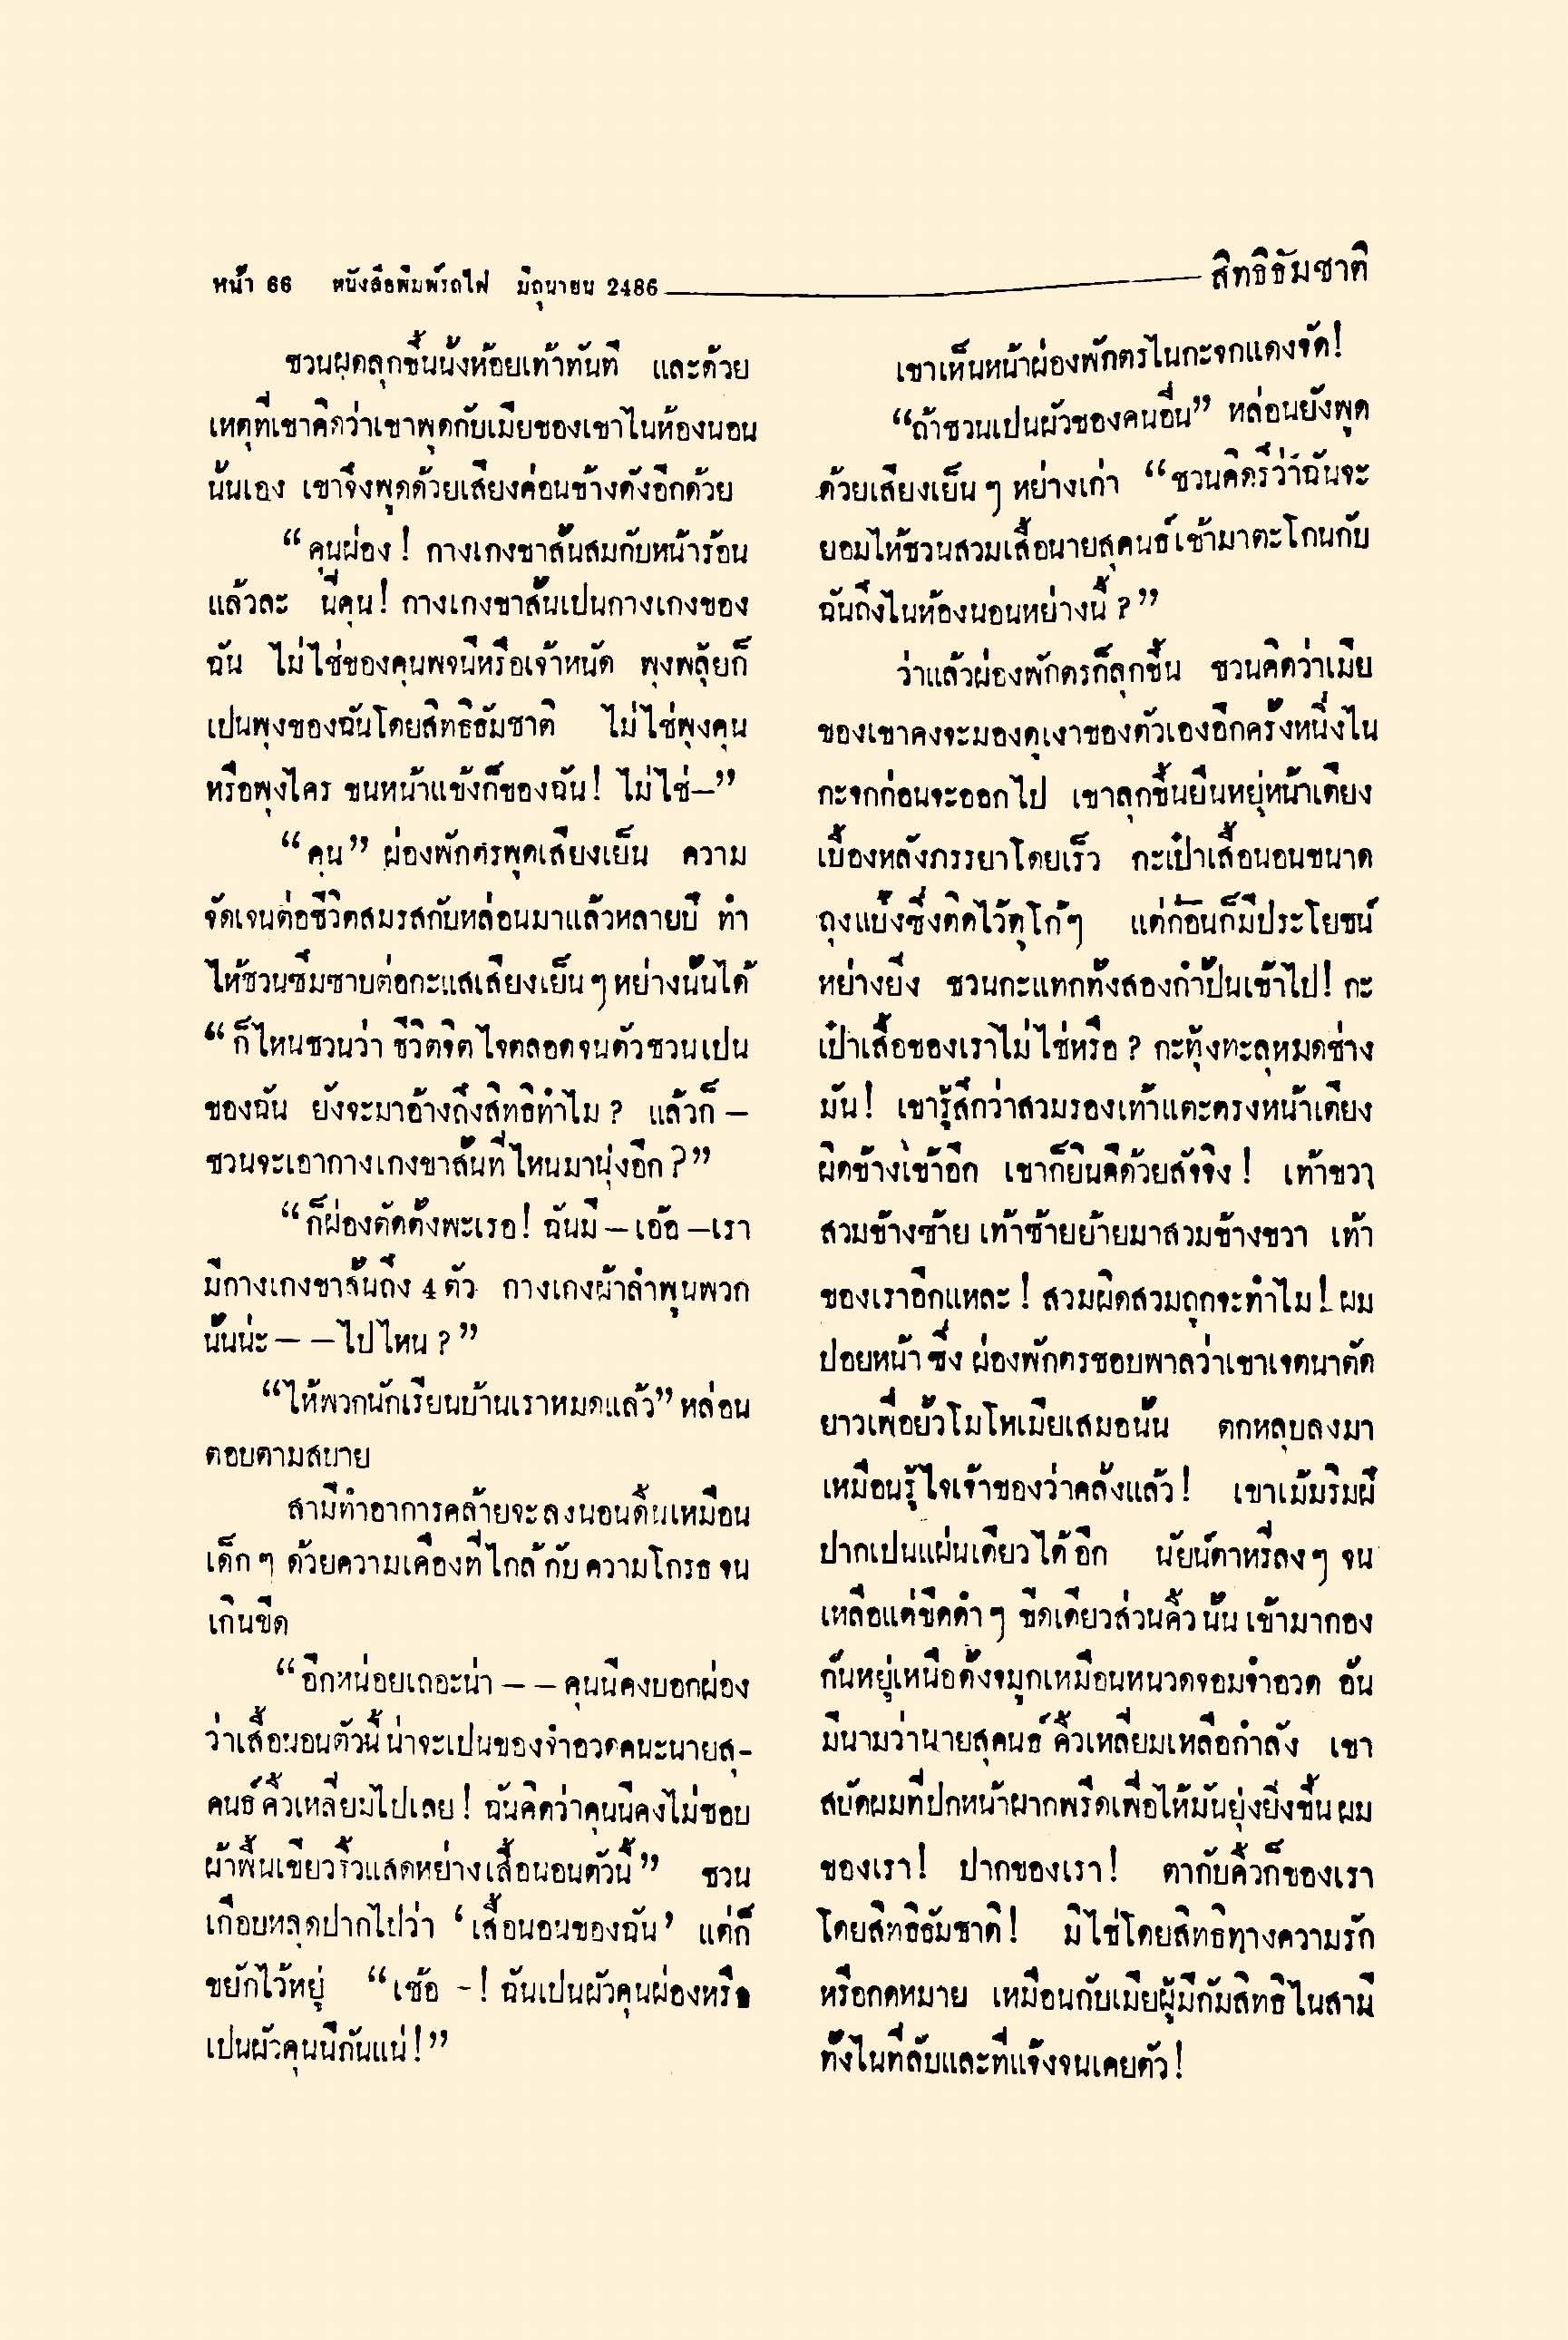 หน้า 66 หนังสือพิมพ์รถไฟ มิถุนายน 2486
สิทธิธัมชาติ
ชวนผุดลุกขึ้นนั่งห้อยเท้าทันที และด้วย
เหตุที่เขาคิดว่าเขาพูดกับเมียของเขาไนห้องนอน
นั้นเอง เขาจึงพูดด้วยเสียงค่อนข้างดังอีกด้วย
“คุนผ่อง! กางเกงขาสั้นสมกับหน้าร้อน
แล้วละ นี่คุน! กางเกงขาสั้นเปนกางเกงของ
ฉัน ไม่ไช่ของคุนพจนีหรือเจ้าหนัด พุงพลุ้ยก็
เปนพุงของฉันโดยสิทธิธัมชาติ ไม่ไช่พุงคุน
หรือพุงไคร ขนหน้าแข้งก็ของฉัน! ไม่ไช่—”
“คุน” ผ่องพักตรพูดเสียงเย็น ความ
จัดเจนต่อชีวิตสมรสกับหล่อนมาแล้วหลายปี ทำ
ไห้ชวนซึมซาบต่อกะแสเสียงเย็นๆ หย่างนั้นได้
“ก็ไหนชวนว่า ชีวิตจิตไจตลอดจนตัวชวนเปน
ของฉัน ยังจะมาอ้างถึงสิทธิทำไม? แล้วก็—
ชวนจะเอากางเกงขาสั้นที่ไหนมานุ่งอีก?”
“ก็ผ่องตัดตั้งพะเรอ! ฉันมี—เอ้อ—เรา
มีกางเกงขาสั้นถึง 4 ตัว กางเกงผ้าลำพุนพวก
นั้นน่ะ— —ไปไหน?”
“ไห้พวกนักเรียนบ้านเราหมดแล้ว” หล่อน
ตอบตามสบาย
สามีทำอาการคล้ายจะลงนอนดิ้นเหมือน
เด็กๆ ด้วยความเคืองที่ไกล้กับความโกรธ จน
เกินขีด
“อีกหน่อยเถอะน่า— —คุนนีคงบอกผ่อง
ว่าเสื้อนอนตัวนี้น่าจะเปนของจำอวดคนะนายสุ-
คนธ์คิ้วเหลี่ยมไปเลย! ฉันคิดว่าคุนนีคงไม่ชอบ
ผ้าพื้นเขียวริ้วแสดหย่างเสื้อนอนตัวนี้” ชวน
เกือบหลุดปากไปว่า ‘เสื้อนอนของฉัน’ แต่ก็
ขยักไว้หยู่ “เชอ้ -! ฉันเปนผัวคุนผ่องหรือ
เปนผัวคุนนีกันแน่!”
เขาเห็นหน้าผ่องพักตรไนกะจกแดงจัด!
“ถ้าชวนเปนผัวของคนอื่น” หล่อนยังพูด
ด้วยเสียงเย็นๆ หย่างเก่า “ชวนคิดรึว่าฉันจะ
ยอมไห้ชวนสวมเสื้อนายสุคนธ์เข้ามาตะโกนกับ
ฉันถึงไนห้องนอนหย่างนี้?”
ว่าแล้วผ่องพักตรก็ลุกขึ้น ชวนคิดว่าเมีย
ของเขาคงจะมองดูเงาของตัวเองอีกครั้งหนึ่งไน
กะจกก่อนจะออกไป เขาลุกขึ้นยืนหยู่หน้าเตียง
เบื้องหลังภรรยาโดยเร็ว กะเป๋าเสื้อนอนขนาด
ถุงแป้งซึ่งติดไว้ดูโก้ๆ แต่ก้อันก็มีประโยชน์
หย่างยิ่ง ชวนกะแทกทั้งสองกำปั้นเข้าไป! กะ
เป๋าเสื้อของเราไม่ไช่หรือ? กะทุ้งทะลุหมดช่าง
มัน! เขารู้สึกว่าสวมรองเท้าแตะตรงหน้าเตียง
ผิดข้างเข้าอีก เขาก็ยินดีด้วยสัจจิง! เท้าขวา
สวมข้างซ้าย เท้าซ้ายย้ายมาสวมข้างขวา เท้า
ของเราอีกแหละ! สวมผิดสวมถูกจะทำไม! ผม
ปอยหน้าซึ่งผ่องพักตรชอบพาลว่าเขาเจตนาตัด
ยาวเพื่อยั่วโมโหเมียเสมอนั้น ตกหลุบลงมา
เหมือนรู้ไจเจ้าของว่าคลั่งแล้ว! เขาเม้มริมฝี
ปากเปนแผ่นเดียวได้อีก นัยน์ตาหรี่ลงๆ จน
เหลือแต่ขีดดำๆ ขีดเดียวส่วนคิ้วนั้นเข้ามากอง
กันหยู่เหนือดั้งจมูกเหมือนหนวดจอมจำอวด อัน
มีนามว่านายสุคนธ์ คิ้วเหลี่ยมเหลือกำลัง เขา
สบัดผมที่ปกหน้าผากพรืดเพื่อไห้มันยุ่งยิ่งขึ้น ผม
ของเรา! ปากของเรา! ตากับคิ้วก็ของเรา
โดยสิทธิธัมชาติ! มิไช่โดยสิทธิทางความรัก
หรือกดหมาย เหมือนกับเมียผู้มีกัมสิทธิไนสามี
ทั้งไนที่ลับและที่แจ้งจนเคยตัว!